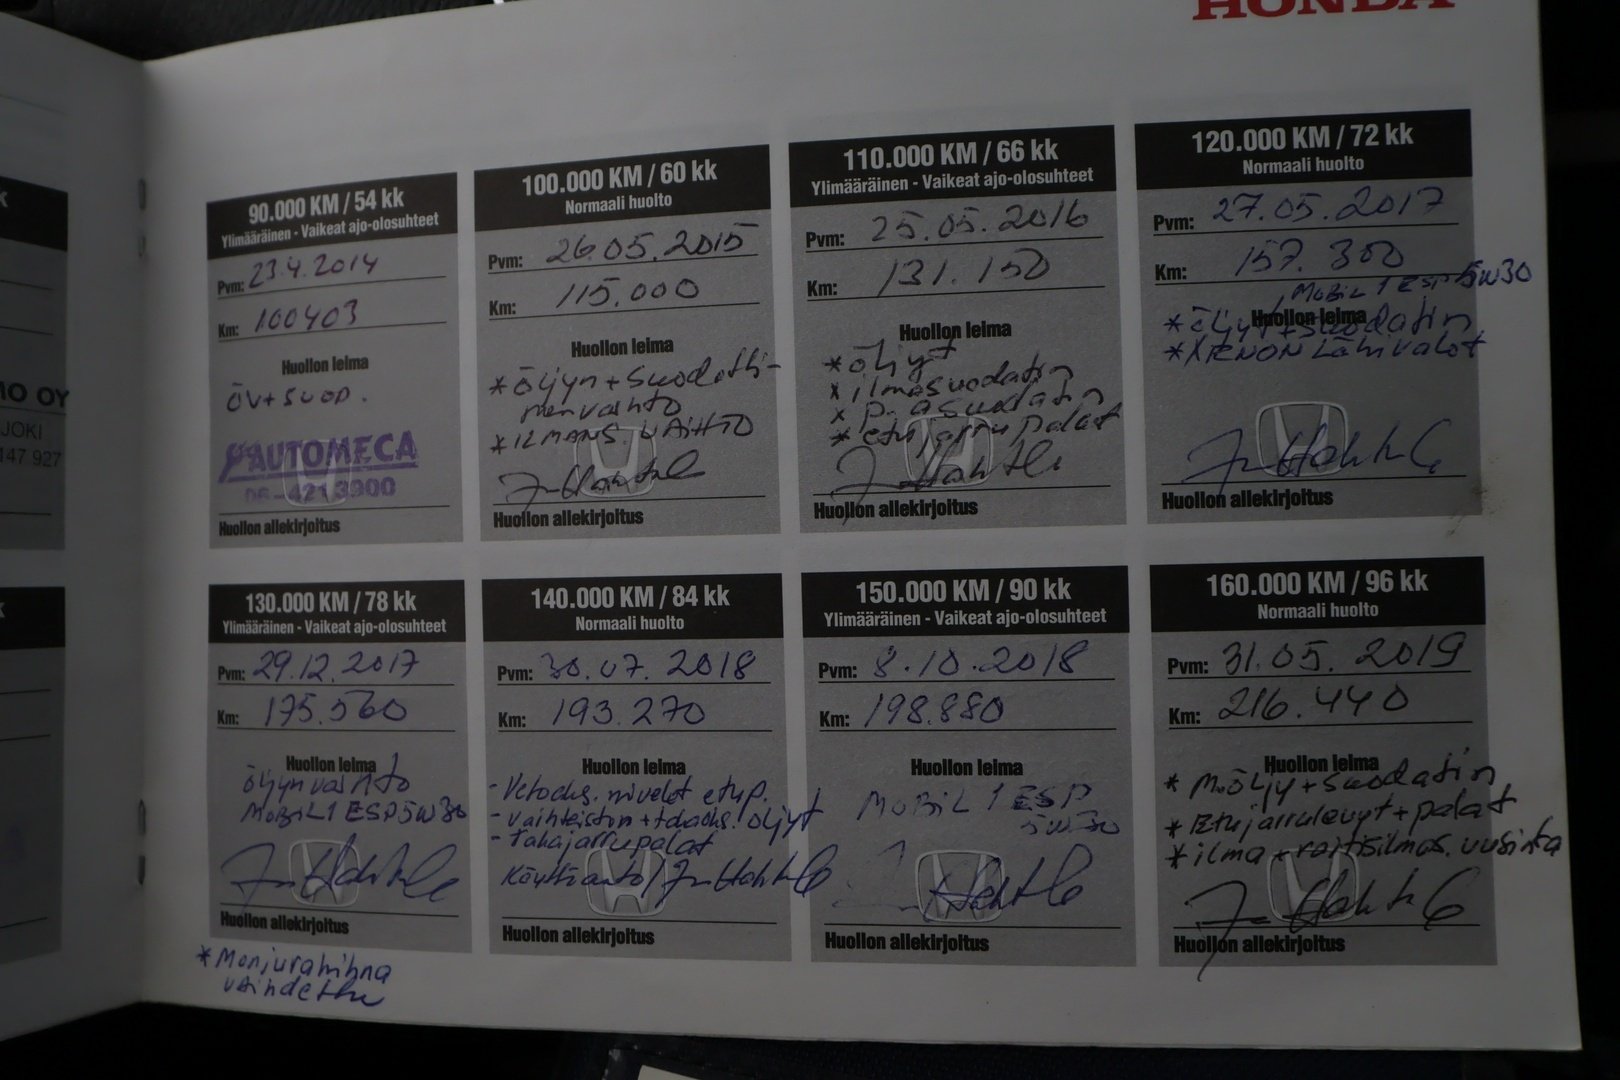 HONDA
MO OY
JOKI
147 927
90.000 KM / 54 kk
Ylimääräinen - Vaikeat ajo-olosuhteet
Pvm: 23.4.2014
Km: 100403
Huollon leima
ÖV + SUOD.
AUTOMECA
06-4213900
Huollon allekirjoitus
100.000 KM / 60 kk
Normaali huolto
Pvm: 26.05.2015
Km: 115.000
Huollon leima
* Öljyn + suodatti-
menvaihto
* ILMANS. VAIHTO
Huollon allekirjoitus
110.000 KM / 66 kk
Ylimääräinen - Vaikeat ajo-olosuhteet
Pvm: 25.05.2016
Km: 131.150
Huollon leima
* öljyt
* ilmasuodatin
* p. asuodatin
* etujarrupalat
Huollon allekirjoitus
120.000 KM / 72 kk
Normaali huolto
Pvm: 27.05.2017
Km: 157.300
MOBIL 1 ESP 5W30
Huollon leima
* öljyt + suodatin
* XENON Lähivalot
Huollon allekirjoitus
130.000 KM / 78 kk
Ylimääräinen - Vaikeat ajo-olosuhteet
Pvm: 29.12.2017
Km: 175.560
Huollon leima
öljynvaihto
MOBIL 1 ESP 5W30
Huollon allekirjoitus
* Moniurahihna
vaihdettu
140.000 KM / 84 kk
Normaali huolto
Pvm: 30.07.2018
Km: 193.270
Huollon leima
- Vetoaks. nivelet etup.
- vaihteiston + taaks. öljyt
- Takajarrupalat
Huollon allekirjoitus
150.000 KM / 90 kk
Ylimääräinen - Vaikeat ajo-olosuhteet
Pvm: 8.10.2018
Km: 198.880
Huollon leima
MOBIL 1 ESP
5W30
Huollon allekirjoitus
160.000 KM / 96 kk
Normaali huolto
Pvm: 31.05.2019
Km: 216.440
Huollon leima
* M.öljy + suodatin
* Etujarrulevyt + palat
* ilma + raitisilmas. uusinta
Huollon allekirjoitus